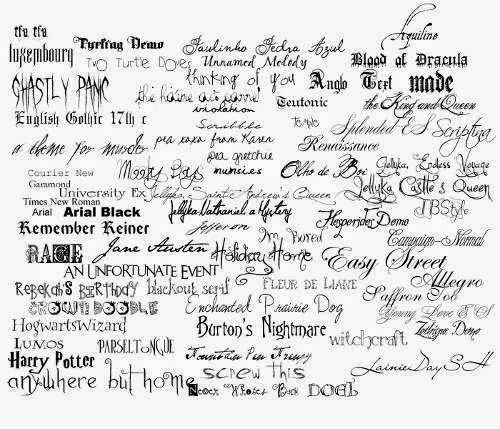 Aquiline
tfu tfu
luxembourg
Turfing Demo
Paulinho Pedra Azul
Two Turtle Doves
Unnamed Melody
Blood of Dracula
thinking of you
Ghastly Panic
Anglo Text
made
violation
Teutonic
the King and Queen
English Gothic 17th c
Scribble
Splendid ES
Scriptina
pea xoxo from Karen
Renaissance
pea gretchie
munsies
Olho de Boi
Jellyka, Endless Voyage
Courier New
Garamond
University Ex
Jellyka, Saint-Andrew's Queen
Jellyka Castle's Queen
Times New Roman
Arial
Arial Black
Jellyka Nathaniel, a Mystery
JBStyle
Remember Reiner
Jefferson
Hesperides Demo
I'm Bored
Campaign-Normal
RAGE
Jane Austen
Holiday Home
Easy Street
AN UNFORTUNATE EVENT
Allegro
Rebekah's Birthday
blackout serif
FLEUR DE LIANE
Saffron Too
CROWN DOODLE
Enchanted Prairie Dog
Young Love ES
HogwartsWizard
Burton's Nightmare
witchcraft
Lumos
PARSELTONGUE
Harry Potter
Fountain Pen Frenzy
LainieDaySH
anywhere but home
screw this